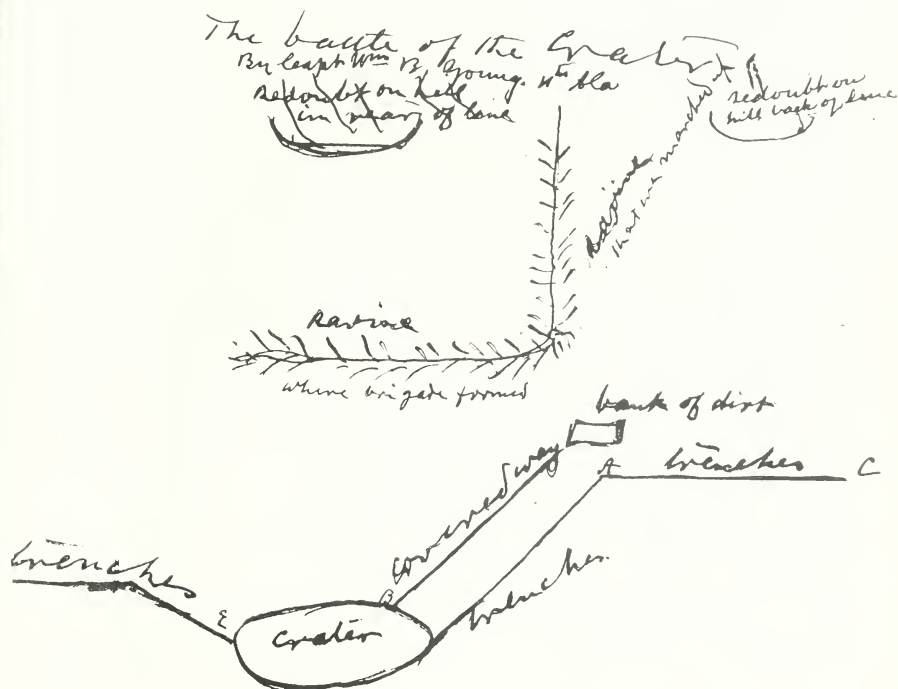 The battle of the Crater
By Capt Wm B. Young. Ala
redoubt on hill
in rear of line
redoubt on
hill back of line
ravine
that we marched
Ravine
where brigade formed
bank of dirt
covered way
A
trenches
C
trenches
B
trenches
E
Crater